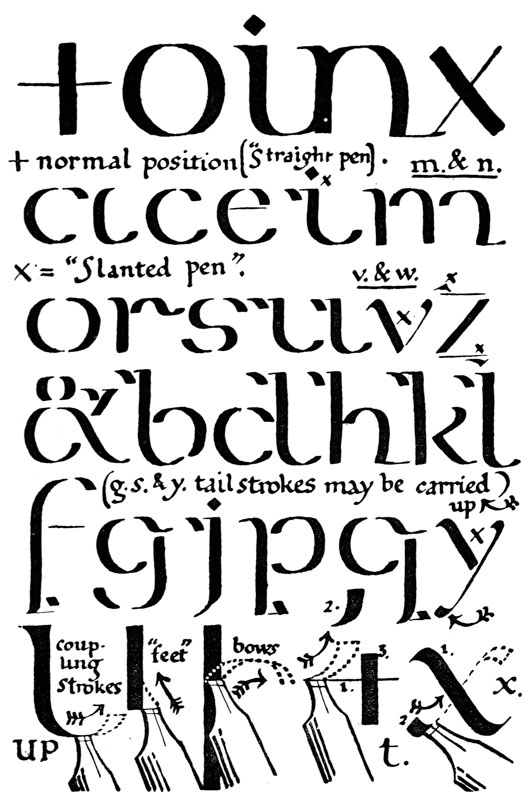 +oinx
+ normal position ("Straight pen). m. & n.
aceim x
x = "Slanted pen". v. & w.
orsuvz x x x
&bdhkl
(g. s. & y. tail strokes may be carried)
up
fgjpqy x
2.
coup-
ling
strokes
"feet"
bows
1. 3.
1. 2. x.
up t.